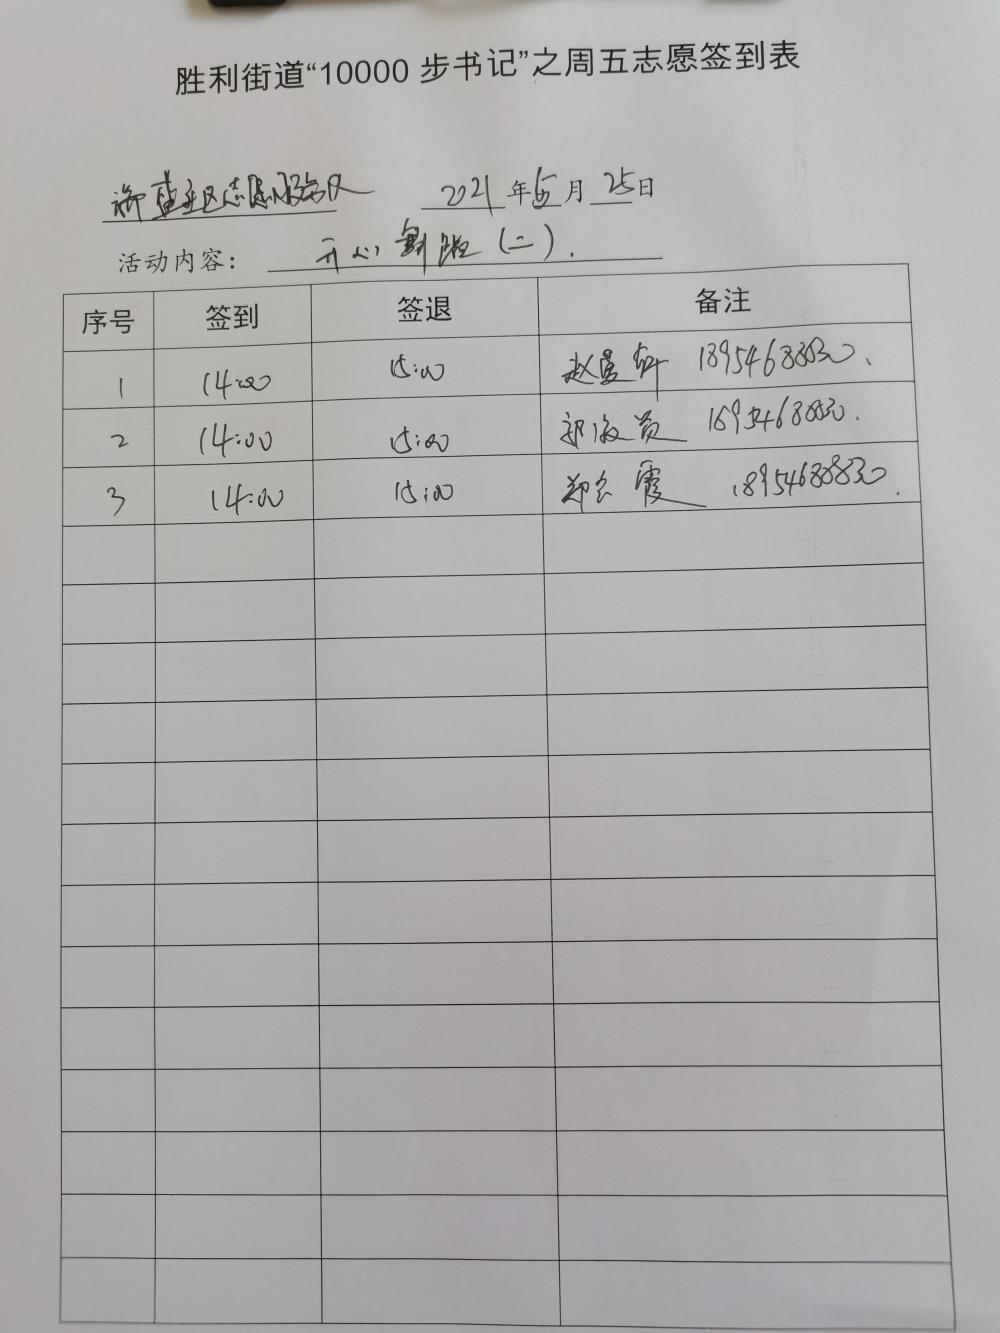 胜利街道“10000 步书记”之周五志愿签到表
社区志愿服务队 2021 年 月 25 日
活动内容： 开心 班（二）.
序号 签到 签退 备注
1 14:00 15:00 赵 18954688830、
2 14:00 15:00 18954688830.
3 14:00 15:00 郑 霞 18954688830.